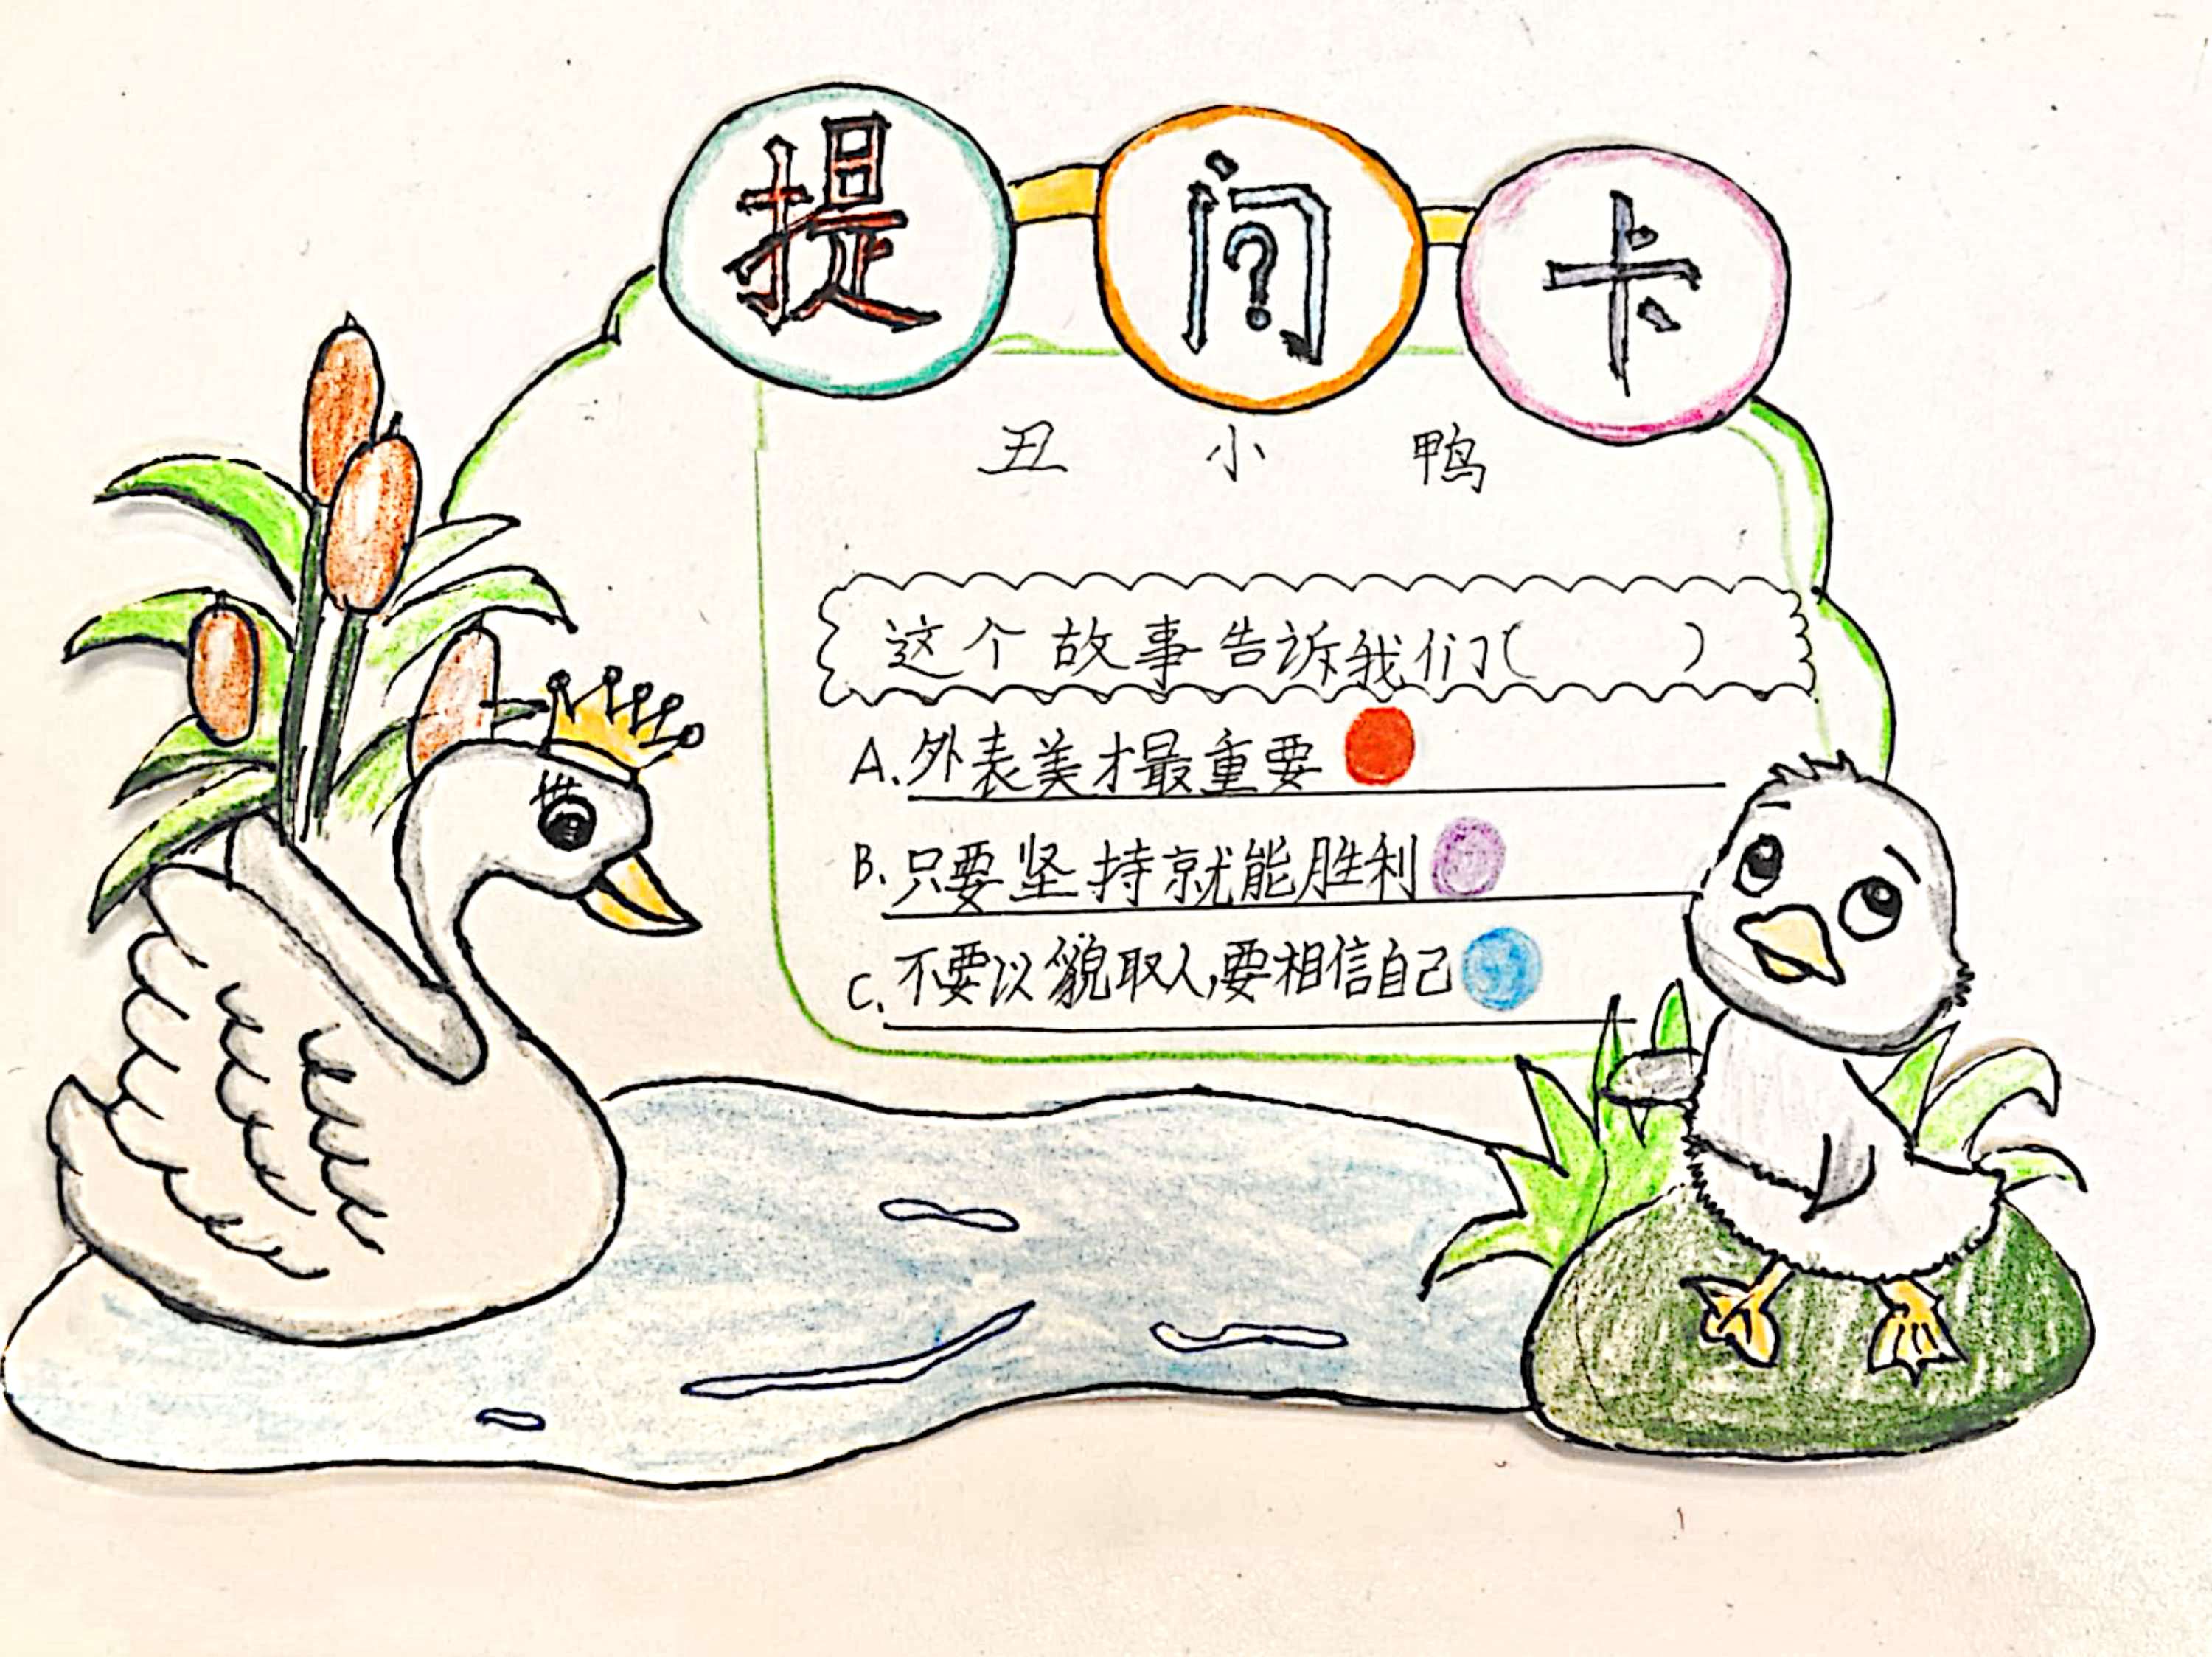 提问卡
丑小鸭
这个故事告诉我们(    )
A.外表美才最重要
B.只要坚持就能胜利
C.不要以貌取人,要相信自己